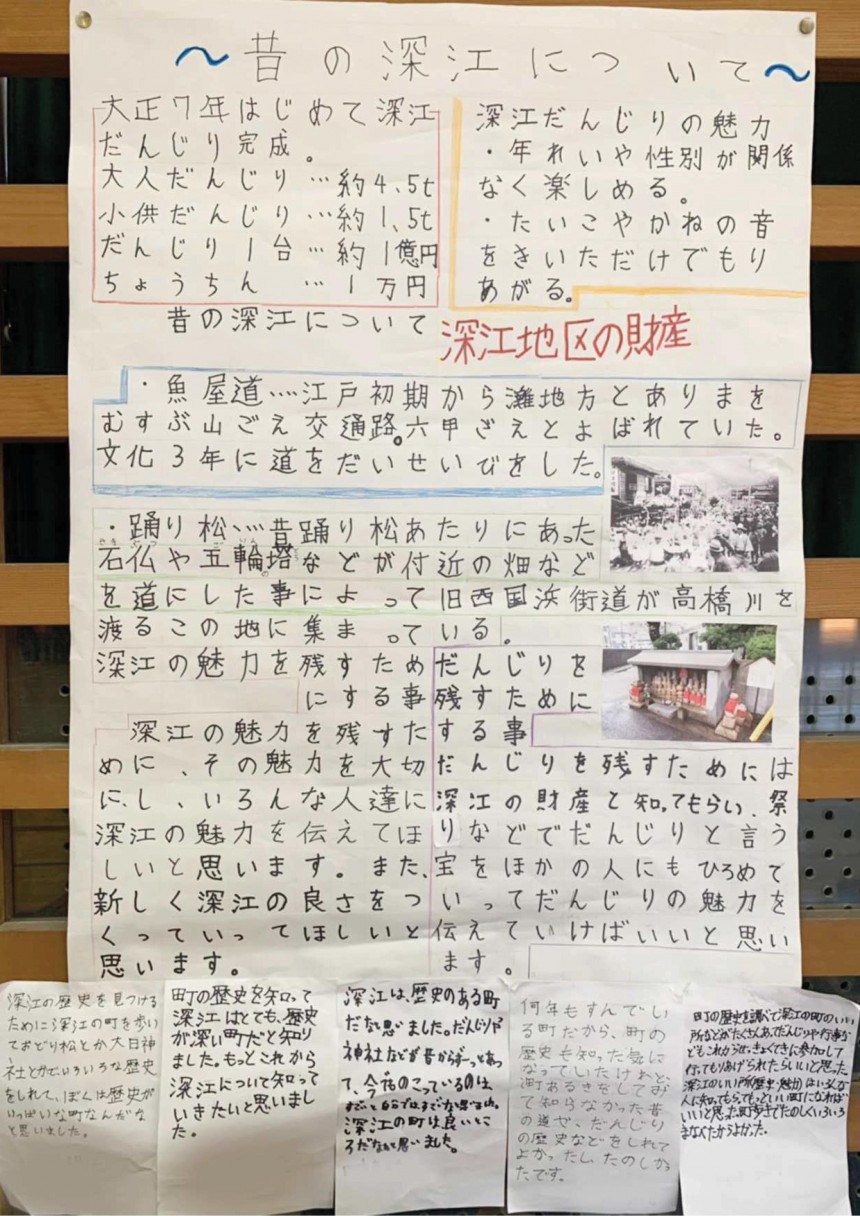 〜昔の深江について〜
大正7年はじめて深江
だんじり完成。
大人だんじり…約4.5t
小供だんじり…約1.5t
だんじり1台…約1億円
ちょうちん…1万円
深江だんじりの魅力
・年れいや性別が関係
なく楽しめる。
・たいこやかねの音
をきいただけでもり
あがる。
昔の深江について
深江地区の財産
・魚屋道…江戸初期から灘地方とありまを
むすぶ山ごえ交通路。六甲ごえとよばれていた。
文化3年に道をだいせいびをした。
・踊り松…昔踊り松あたりにあった
石仏や五輪塔などが付近の畑など
を道にした事によって旧西国浜街道が高橋川を
渡るこの地に集まっている。
深江の魅力を残すため
にする事
深江の魅力を残すた
めに、その魅力を大切
に、し、いろんな人達に
深江の魅力を伝えてほ
しいと思います。また、
新しく深江の良さをつ
くっていってほしいと
思います。
だんじりを
残すために
する事
だんじりを残すためには
深江の財産と知ってもらい、祭
りなどでだんじりと言う
宝をほかの人にもひろめて
いってだんじりの魅力を
伝えていけばいいと思い
ます。
深江の歴史を見つける
ために深江の町を歩い
ておどり松とか大日神
社とかでいろいろな歴史
をしれて、ぼくは歴史が
いっぱいな町なんだな
と思いました。
町の歴史を知って
深江はとても、歴史
が深い町だと知り
ました。もっとこれから
深江について知って
いきたいと思いまし
た。
深江は、歴史のある町
だなと思いました。だんじりや
神社などが昔からずーっとあっ
て、今でものこっているのは
深江の町は良いとこ
ろだなと思いました。
何年もすんでい
る町だから、町の
歴史も知った気に
なっていたけれど、
町あるきをしてみ
て知らなかった昔
の道や、だんじり
の歴史などをしれて
よかったし、たのしかっ
たです。
町の歴史を調べて深江の町のいい
所などがたくさんあっただんじりや行事な
どもこれからは、せっきょくてきに参加して
行ってもりあげられたらいいと思った。
深江のいい所(歴史・魅力)はいろんな
人に知ってもらってもっといい町になれば
いいと思った町歩きでたのしくいろいろ
まなべたからよかった。